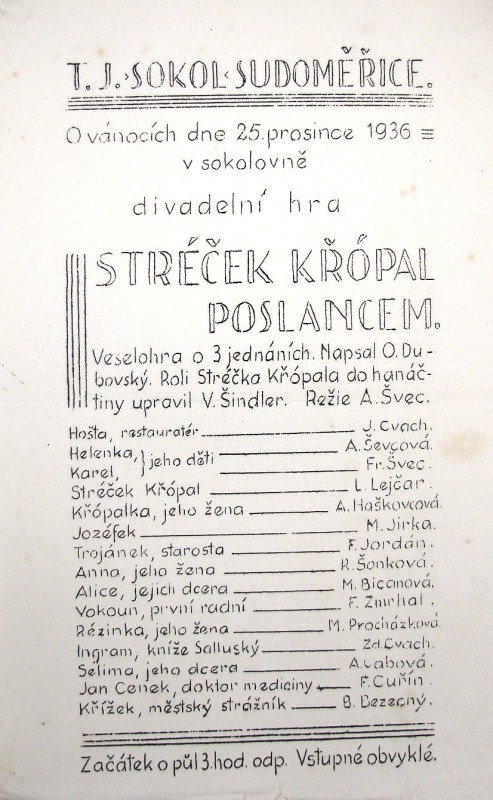 T. J. ›SOKOL‹ SUDOMĚŘICE.
O vánocích dne 25. prosince 1936
v sokolovně
divadelní hra
STRÉČEK KŘÓPAL
POSLANCEM.
Veselohra o 3 jednáních. Napsal O. Du-
bovský. Roli Stréčka Křópala do hanáč-
tiny upravil V. Šindler. Režie A. Švec.
Hošta, restauratér J. Cvach.
Helenka, } jeho děti A. Ševcová.
Karel, Fr. Švec.
Stréček Křópal L. Lejčar.
Křópalka, jeho žena A. Haškovcová.
Jozéfek M. Jirka.
Trojánek, starosta F. Jordán.
Anna, jeho žena R. Šonková.
Alice, jejich dcera M. Bicanová.
Vokoun, první radní F. Zmrhal.
Rézinka, jeho žena M. Procházková.
Ingram, kníže Salluský Zd. Cvach.
Selima, jeho dcera A. Labová.
Jan Cenek, doktor mediciny F. Cuřín.
Křížek, městský strážník B. Bezecný.
Začátek o půl 3. hod. odp. Vstupné obvyklé.